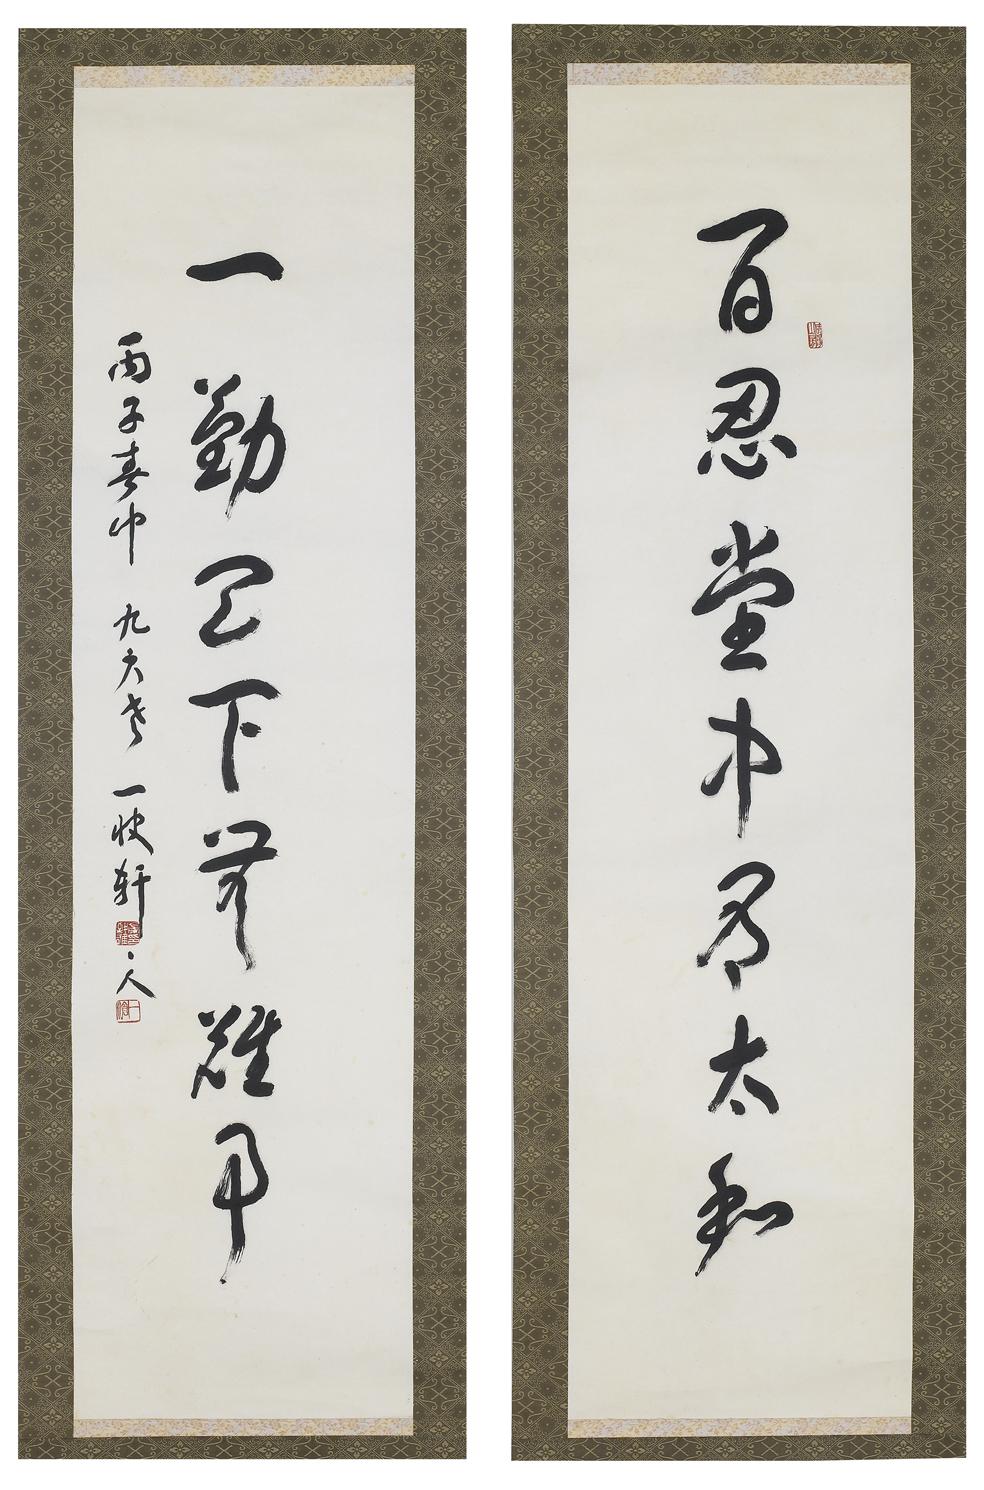 百忍堂中有太和
一勤天下無難事
丙子春中 九六老 一快軒人